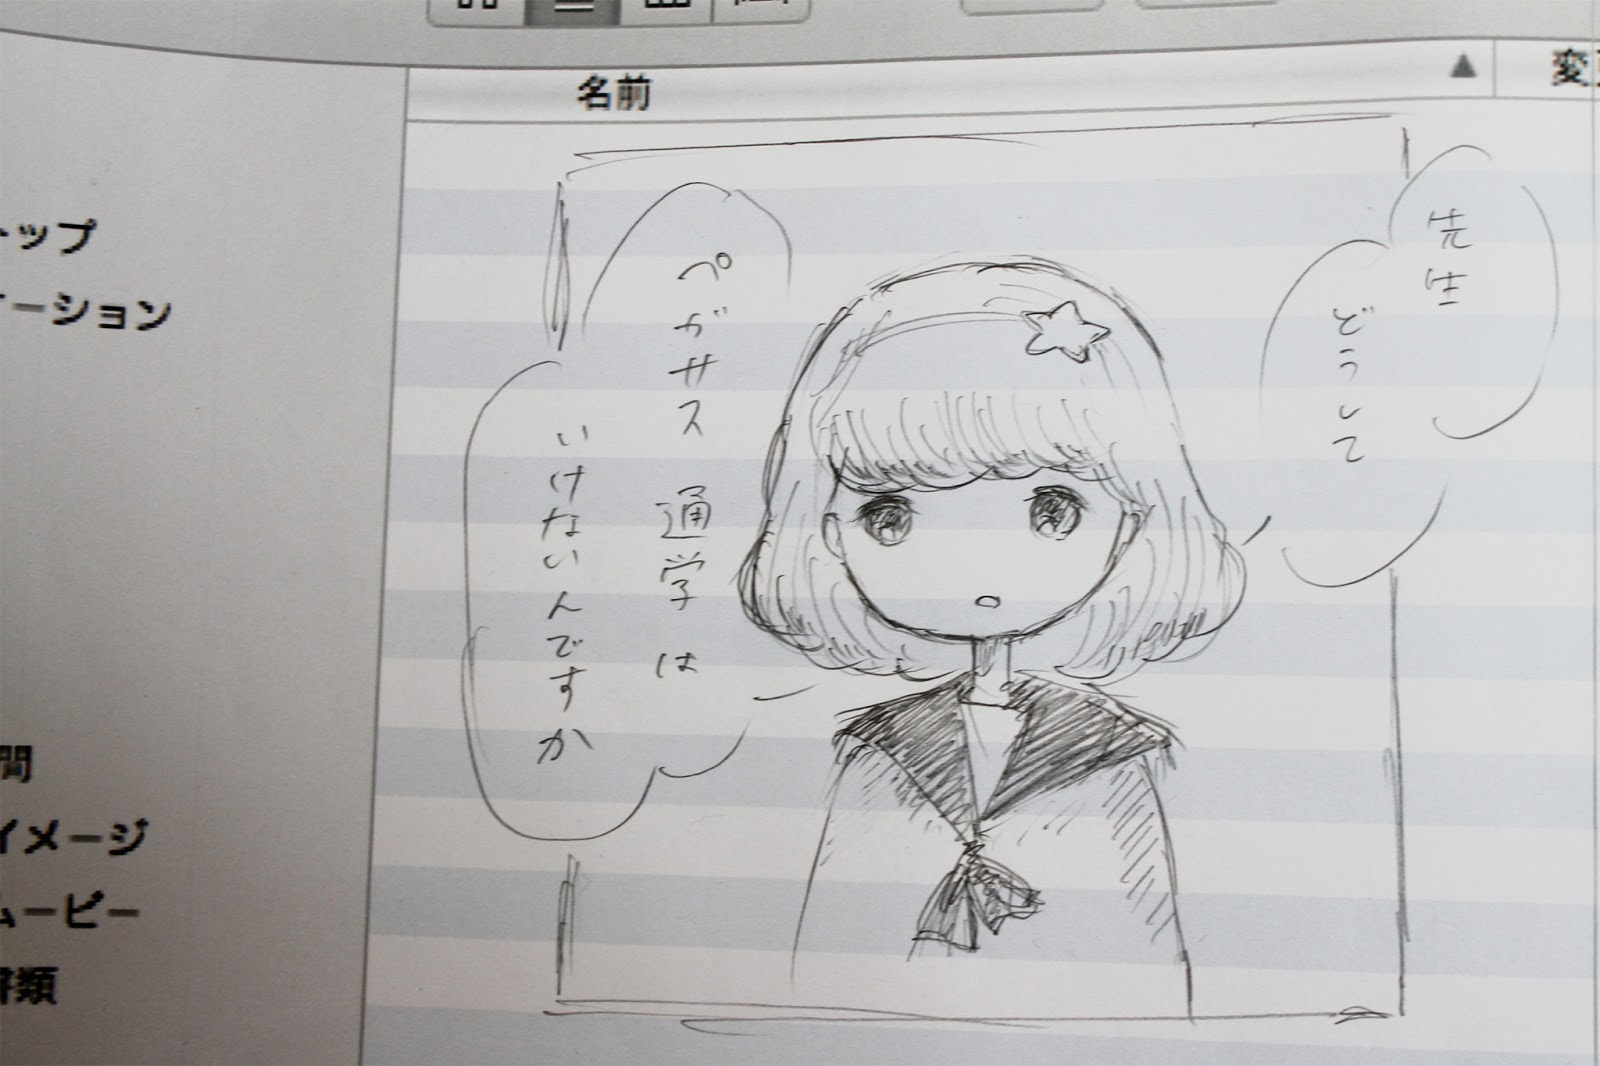 名前
変更
トップ
ーション
間
イメージ
ムービー
書類
先生
どうして
ペガサス通学は
いけないんですか